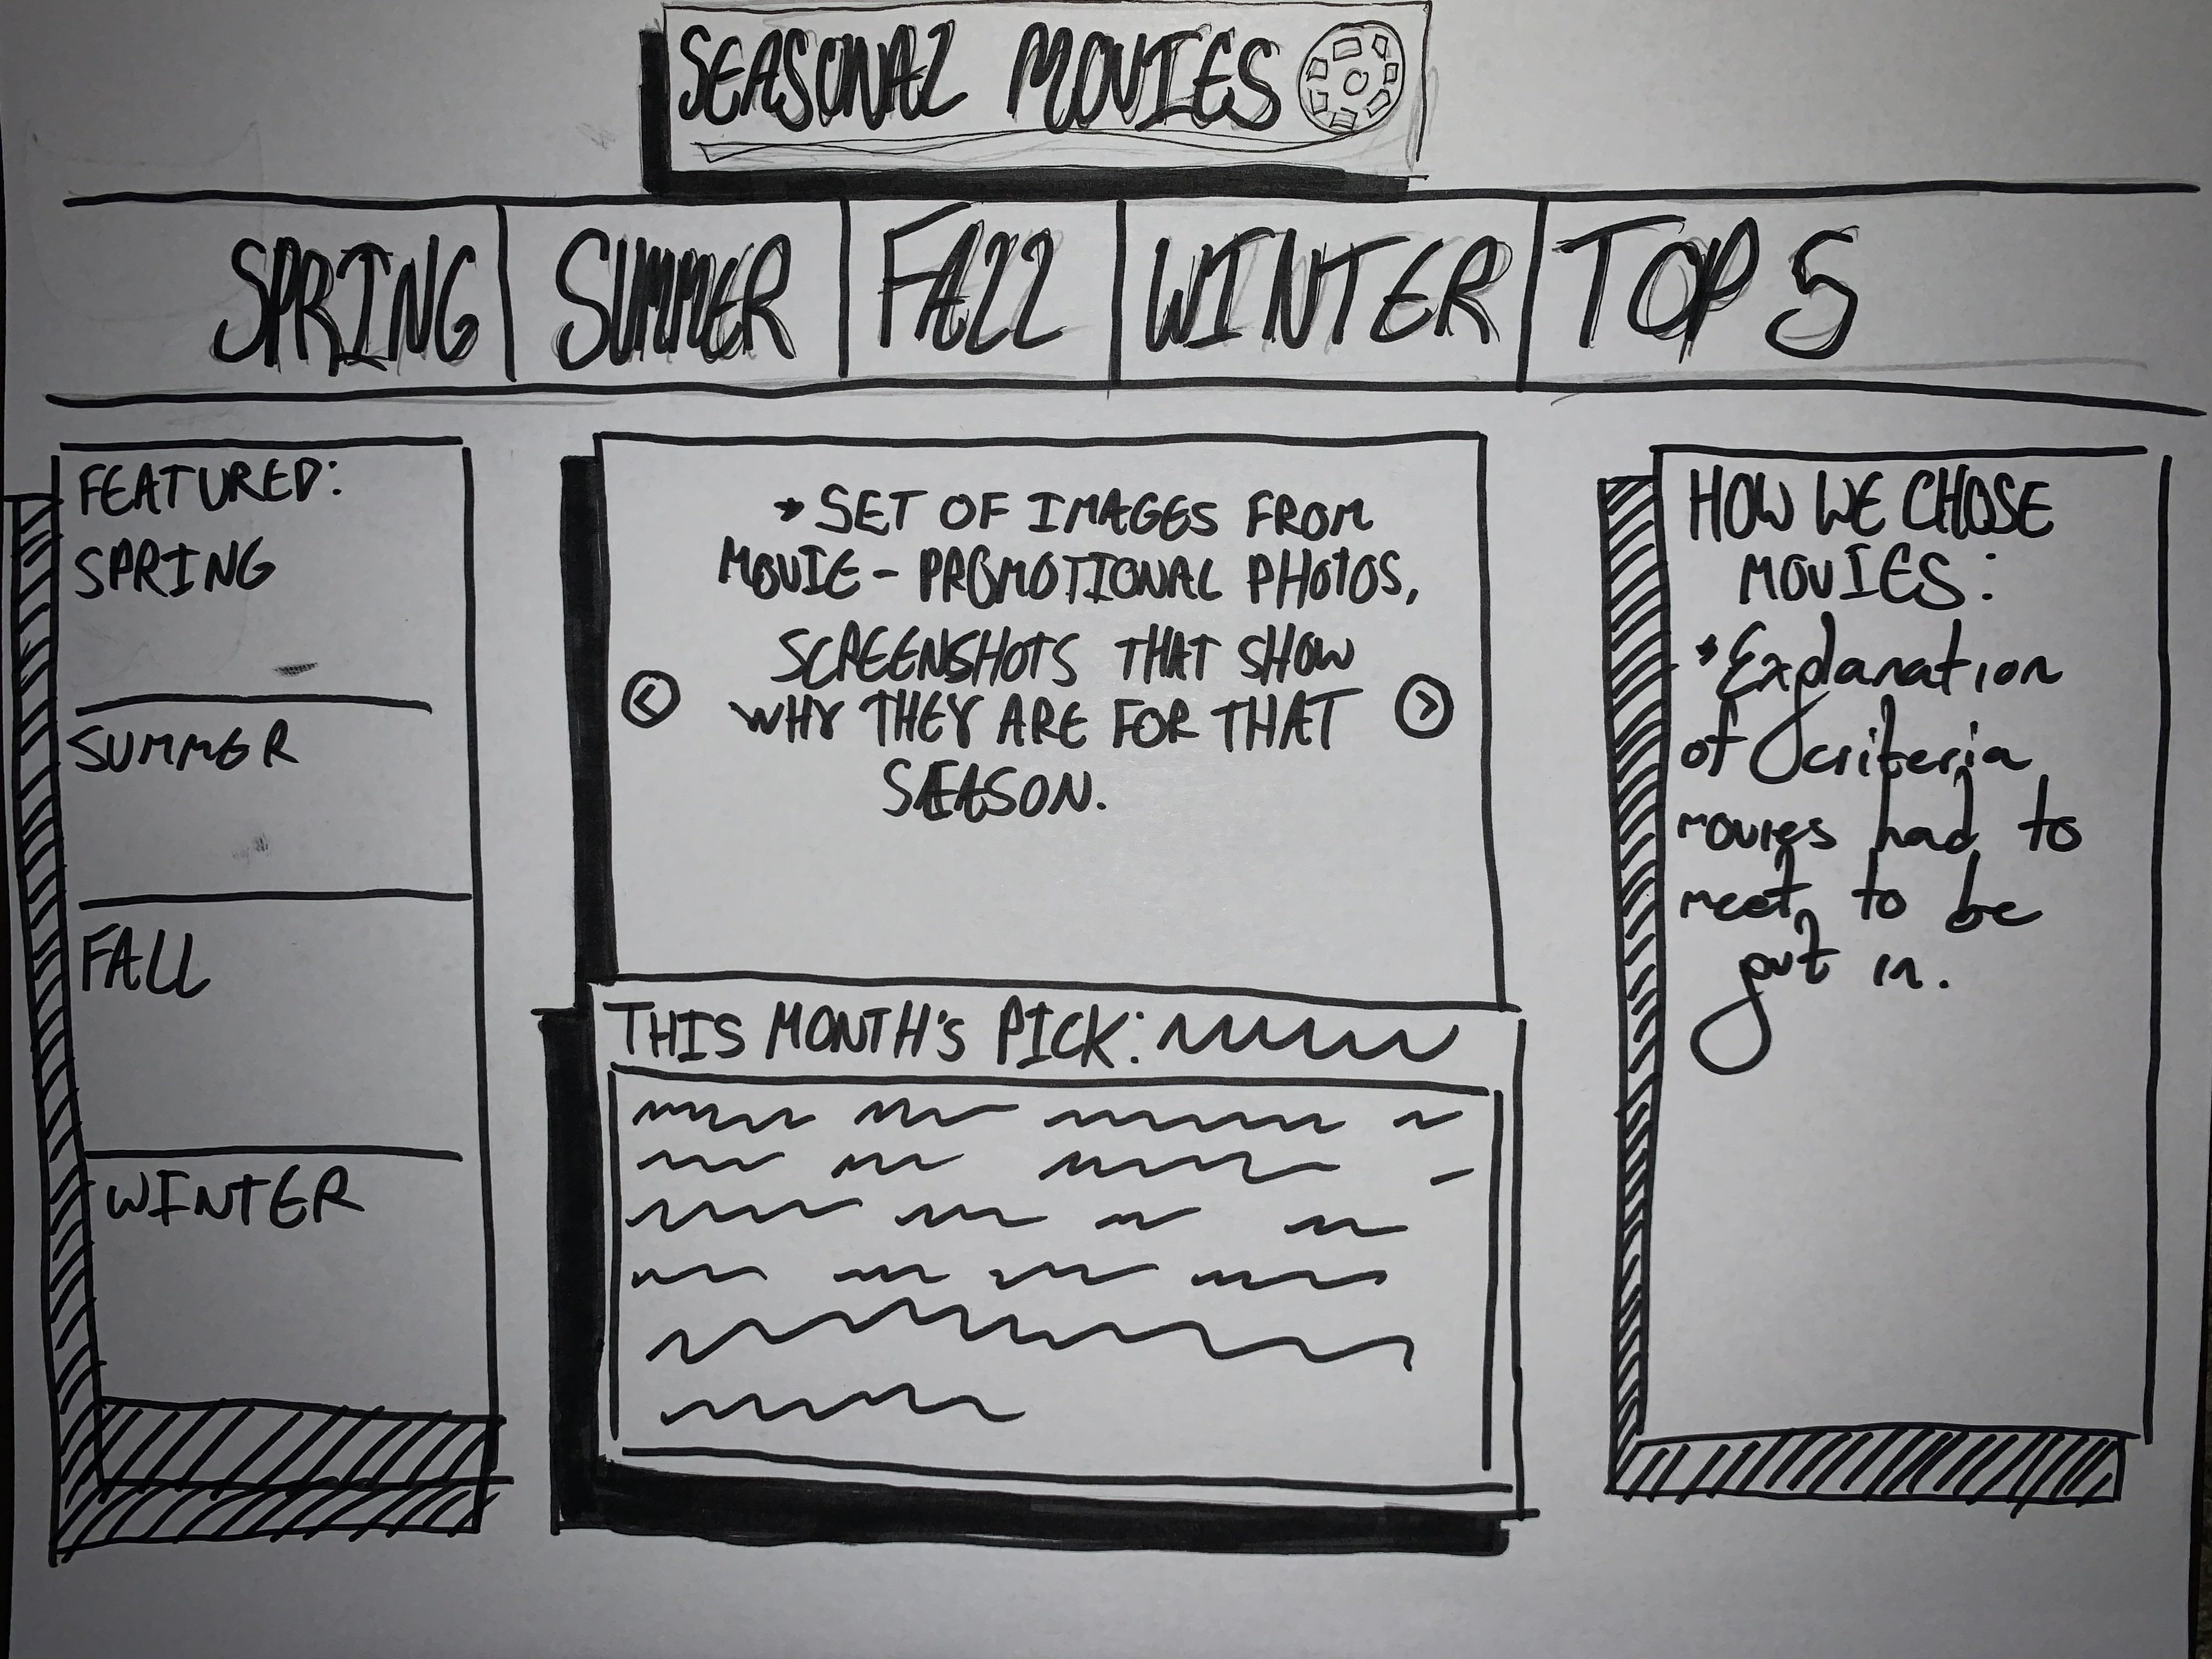 SEASONAL MOVIES
SPRING
SUMMER
FALL
WINTER
TOP 5
FEATURED:
SPRING
SUMMER
FALL
WINTER
SET OF IMAGES FROM
MOVIE - PROMOTIONAL PHOTOS,
SCREENSHOTS THAT SHOW
WHY THEY ARE FOR THAT
SEASON.
<
>
THIS MONTH'S PICK:
HOW WE CHOSE
MOVIES:
Explanation
of criteria
movies had to
meet to be
put in.